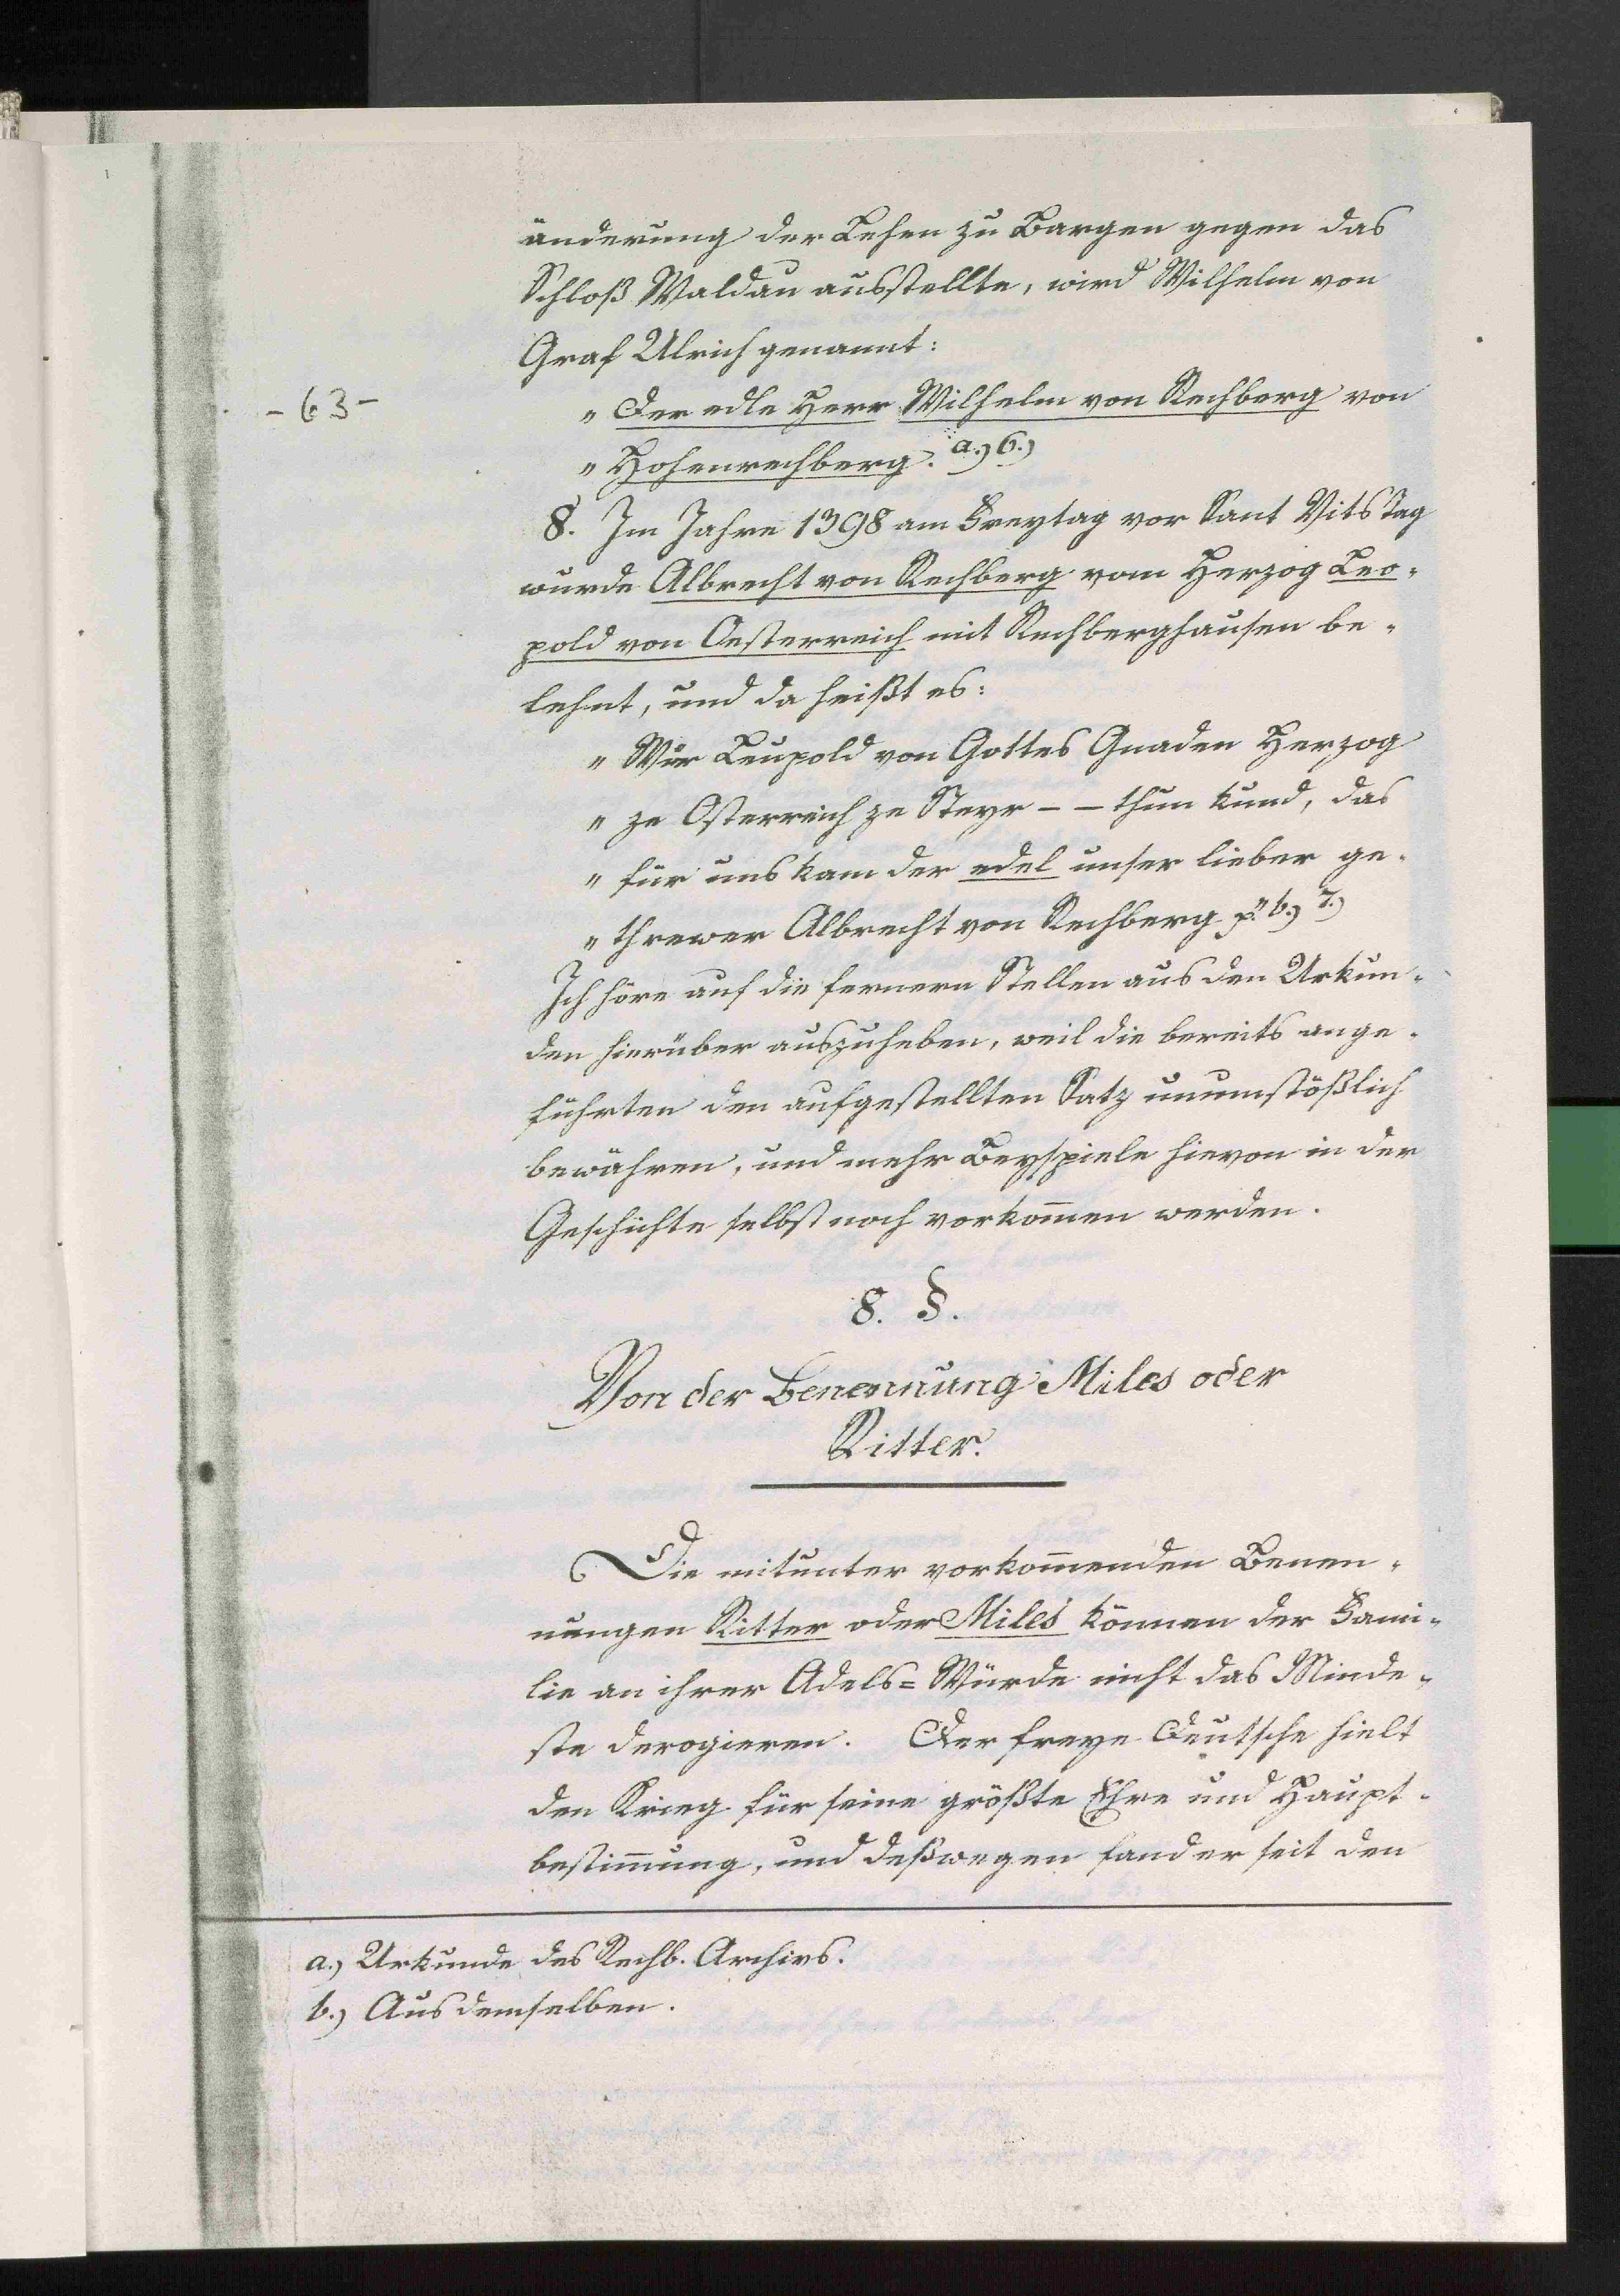 änderung der Lehen zu Bargen gegen das
Schloß Waldau ausstellte, wird Wilhelm von
Graf Ulrich genannt:
- 63 -
" Der edle Herr Wilhelm von Rechberg von
" Hohenrechberg. a.) 6.)
8. Im Jahre 1398 am Freytag vor Sant Vits Tag
wurde Albrecht von Rechberg vom Herzog Leo-
pold von Oesterreich mit Rechberghausen be-
lehnt, und da heißt es:
" Wür Leupold von Gottes Gnaden Herzog
" ze Osterreich ze Steyr - - thun kund, das
" für uns kam der edel unser lieber ge-
" threwer Albrecht von Rechberg p." b.) 7.)
Ich höre auf die fernern Stellen aus den Urkun-
den hierüber auszuheben, weil die bereits ange-
führten den aufgestellten Satz unumstößlich
bewähren, und mehr Beyspiele hievon in der
Geschichte selbst noch vorkom̅en werden.
8. §.
Von der Benennung Miles oder
Ritter.
Die mitunter vorkom̅enden Benen-
nungen Ritter oder Miles können der Fami-
lie an ihrer Adels=Würde nicht das Minde-
ste derogieren. Der freye Deutsche hielt
den Krieg für seine größte Ehre und Haupt-
bestim̅ung, und deßwegen fand er seit den
a.) Urkunde des Rechb. Archivs.
b.) Aus demselben.